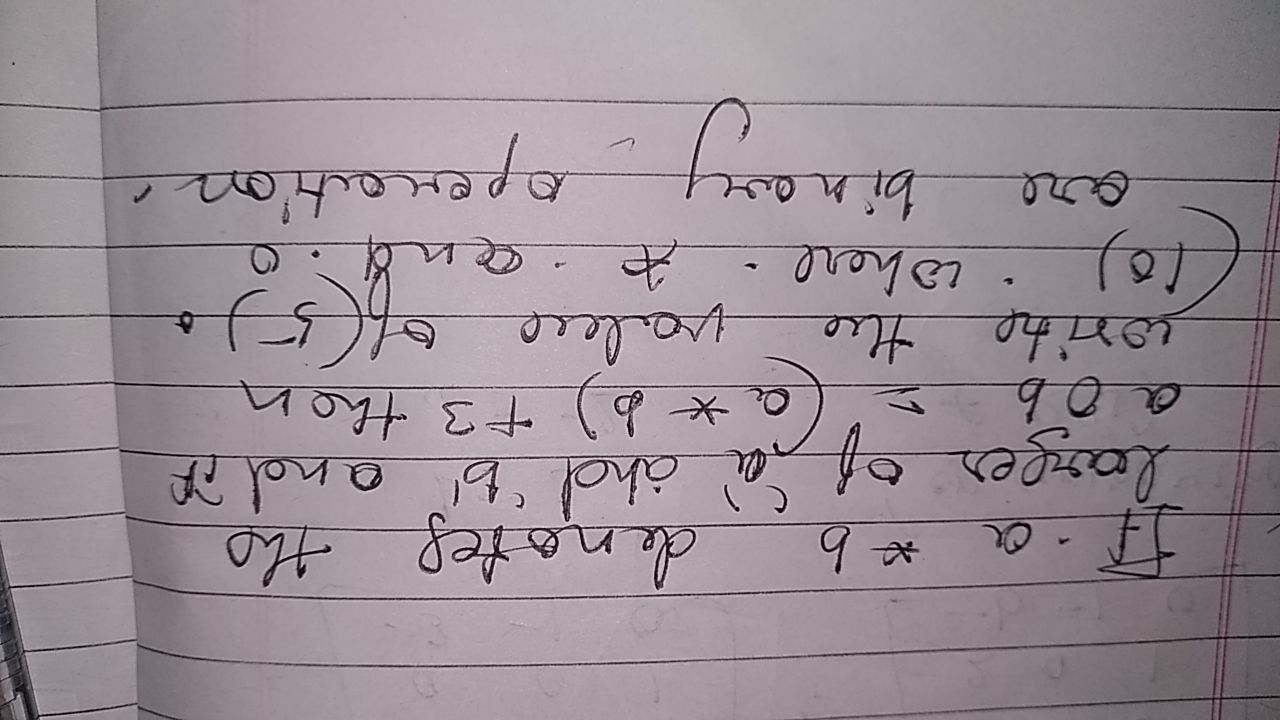 If . a * b denotes the
larger of 'a' and 'b' and if
a O b = (a * b) + 3 then
write the value of (5) o
(10) . where . * . and . o
are binary operation.